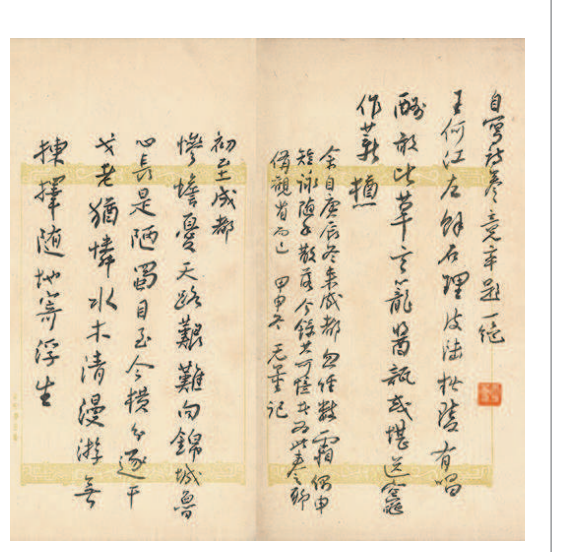 自寫詩卷竟率題一絕
王何江左餘名理皮陸松陵有唱
酬敢比草玄籠醬瓿或堪送竈
作薪槱
余自庚辰冬來成都忽經數霜偶申
短詠隨手散落今錄其可憶者為此卷聊
備觀省而已 甲申冬 无量記
初至成都
慘憺憂天路艱難向錦城魯
心長是陋蜀目至今橫久逐干
戈老猶憐水木清漫游無
揀擇隨地寄浮生